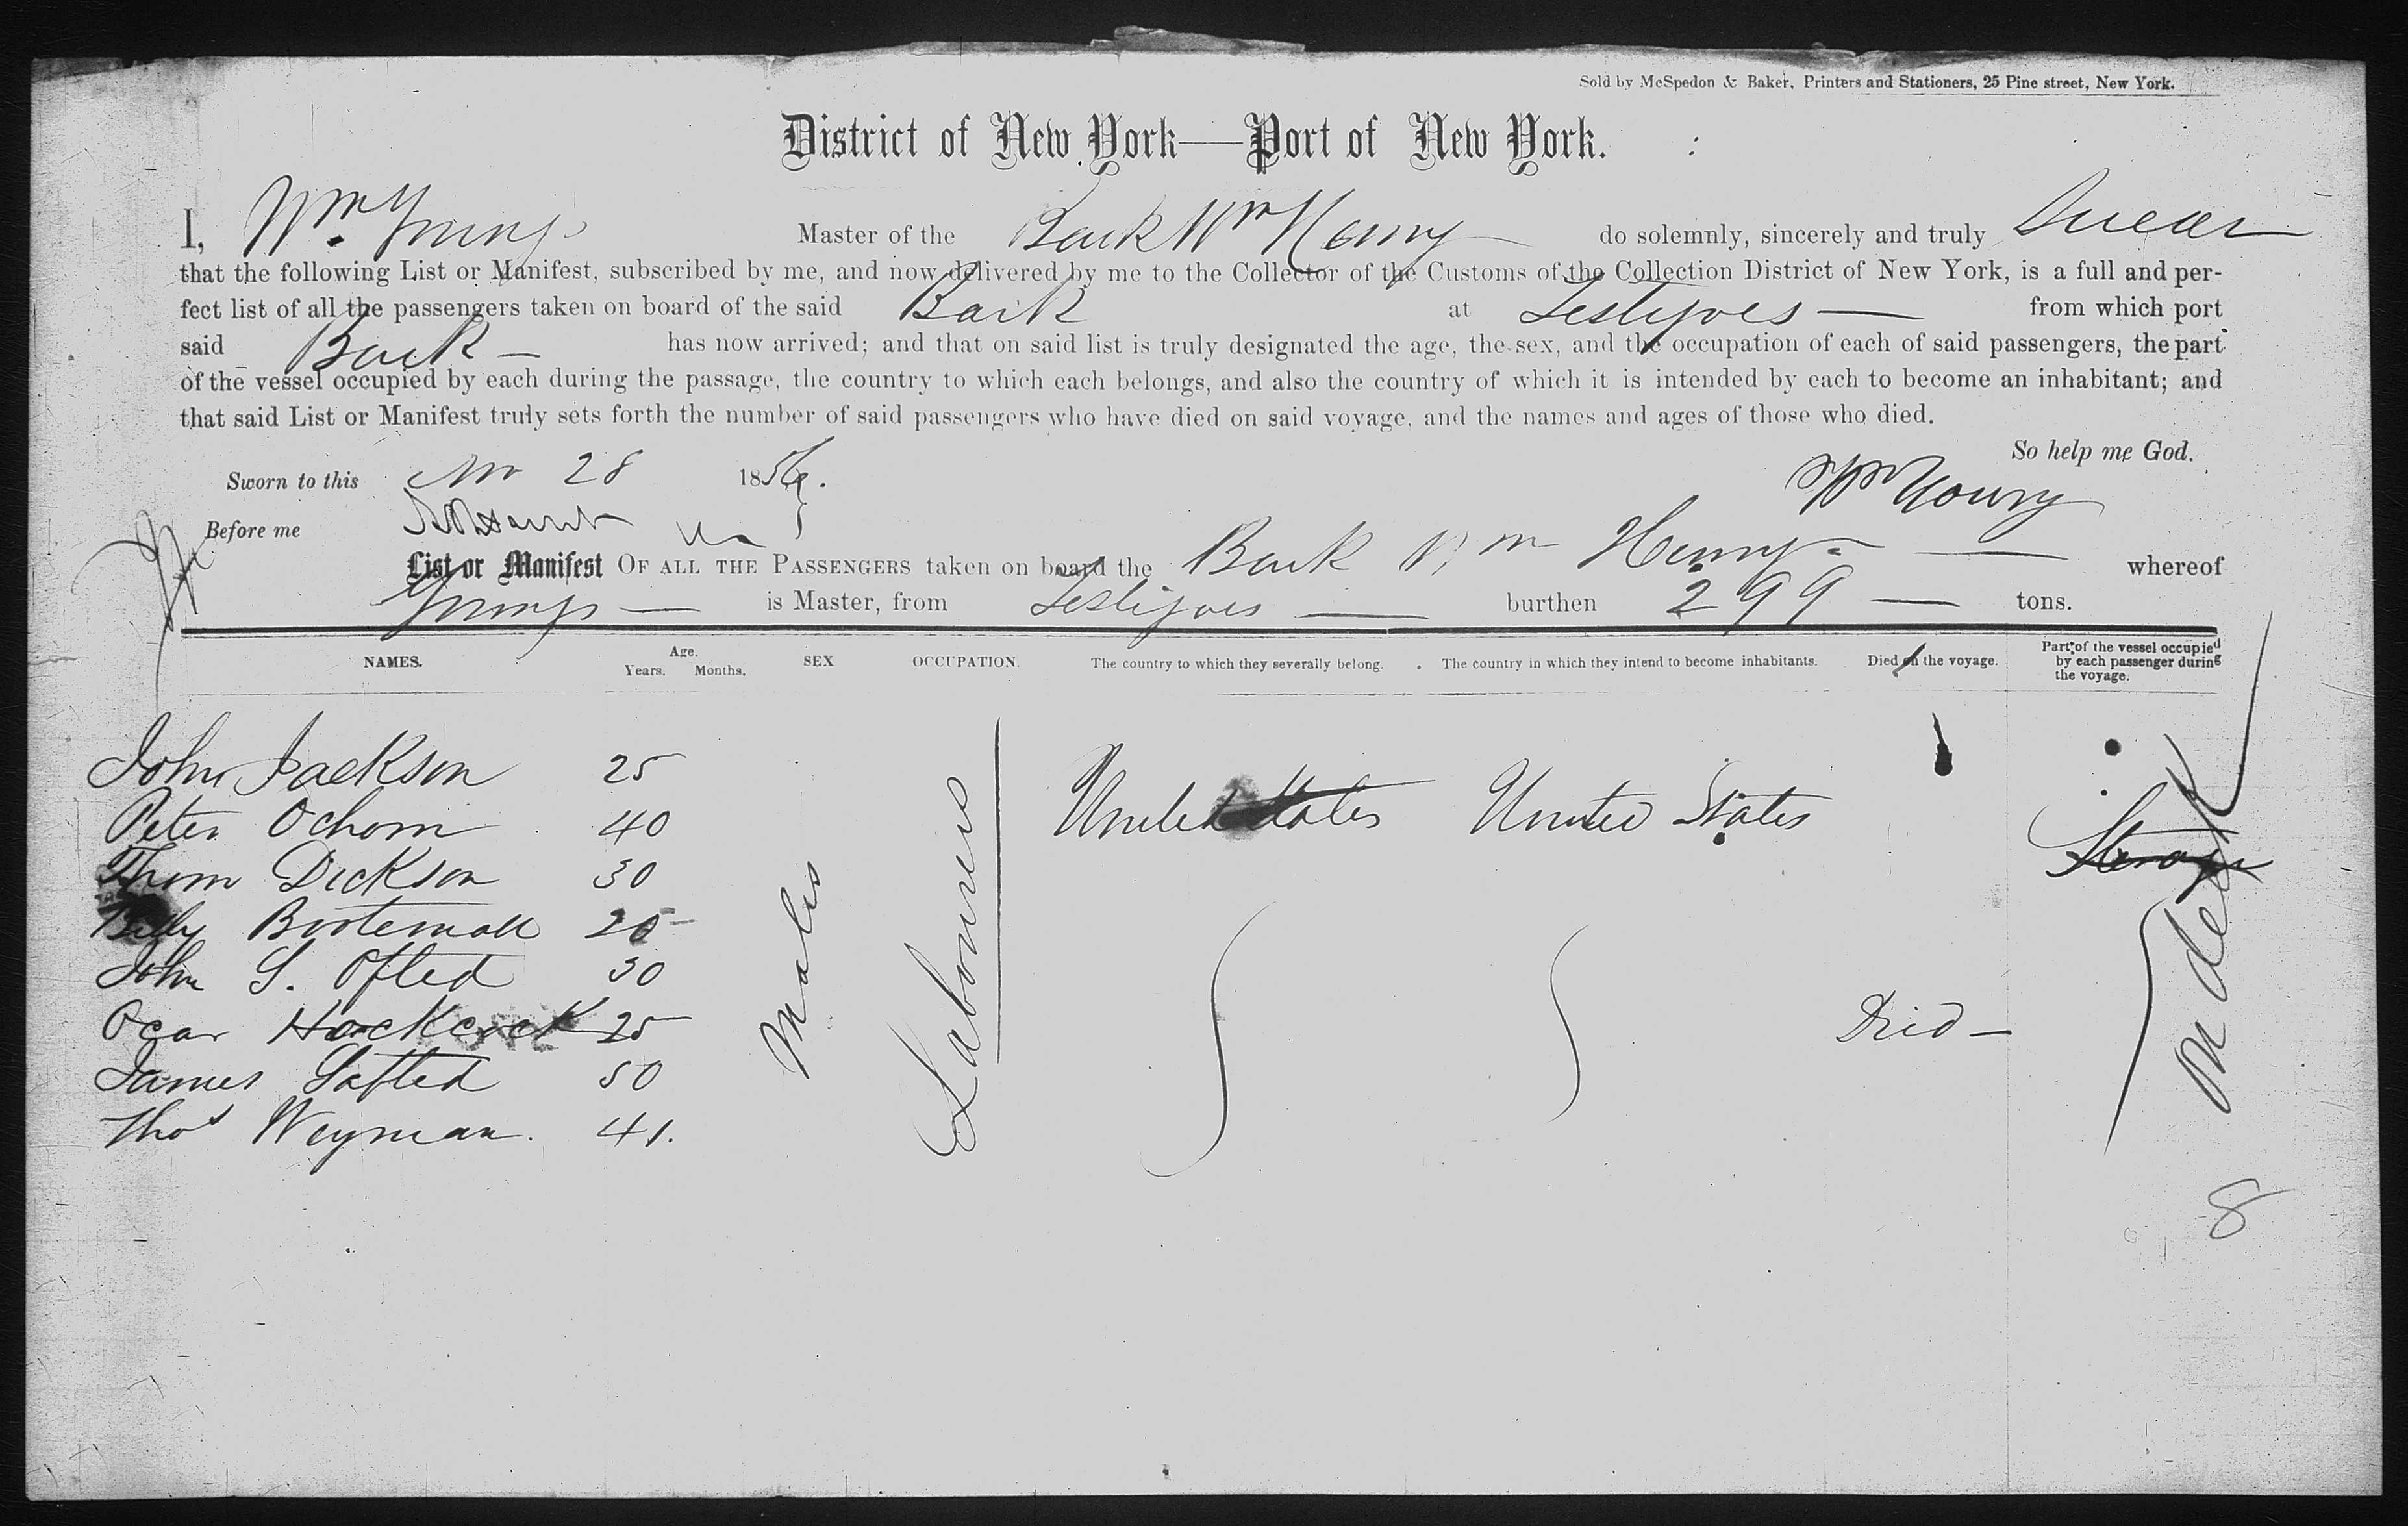 Sold by McSpedon & Baker, Printers and Stationers, 25 Pine street, New York.
District of New York—Port of New York.
I, Wm. Young Master of the Bark Wm Henry do solemnly, sincerely and truly Swear
that the following List or Manifest, subscribed by me, and now delivered by me to the Collector of the Customs of the Collection District of New York, is a full and per-
fect list of all the passengers taken on board of the said Bark at from which port
said Bark — has now arrived; and that on said list is truly designated the age, the sex, and the occupation of each of said passengers, the part
of the vessel occupied by each during the passage, the country to which each belongs, and also the country of which it is intended by each to become an inhabitant; and
that said List or Manifest truly sets forth the number of said passengers who have died on said voyage, and the names and ages of those who died.
So help me God.
Sworn to this Nov 28 1856.
Wm Young
Before me
List or Manifest OF ALL THE PASSENGERS taken on board the Bark Wm Henry — whereof
Young — is Master, from burthen 299 — tons.
NAMES. Age. Years. Months. SEX OCCUPATION. The country to which they severally belong. The country in which they intend to become inhabitants. Died on the voyage. Part of the vessel occupied by each passenger during the voyage.
John Jackson 25 Males Labourers United States United States Steerage On deck
Peter Ochorn 40
Thom Dickson 30
Billy 25
John S. Ofted 30
Ocar Hackcock 25 Died —
James Lafted 50
Thos Weyman. 41.
8